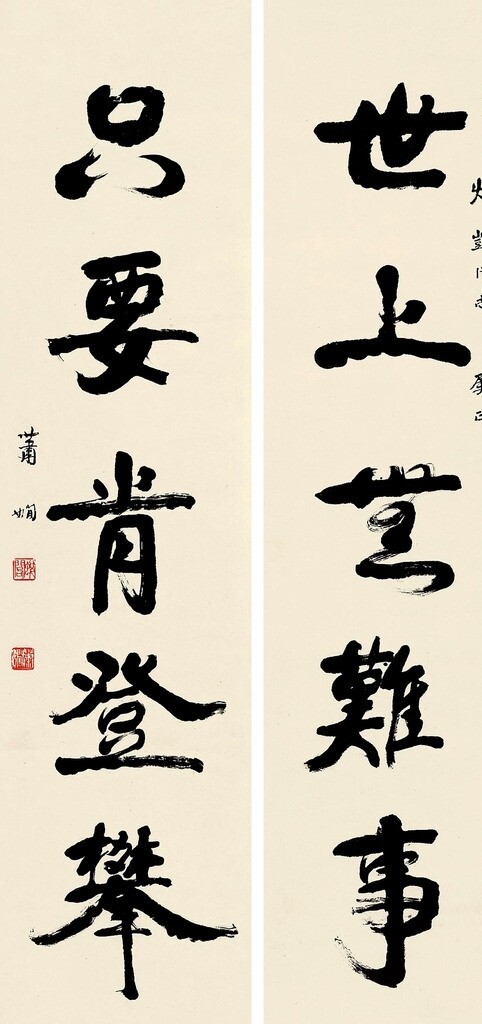 世上無難事
只要肯登攀
蕭嫻